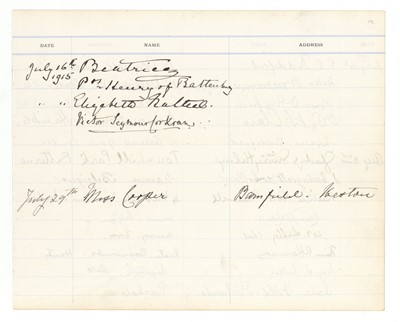 DATE NAME ADDRESS
July 16th 1915 Beatrice
Pss Henry of Battenberg
" " Elizabeth
Victor Seymour Corkran
July 29th Moss Cooper Bamfield. Weston